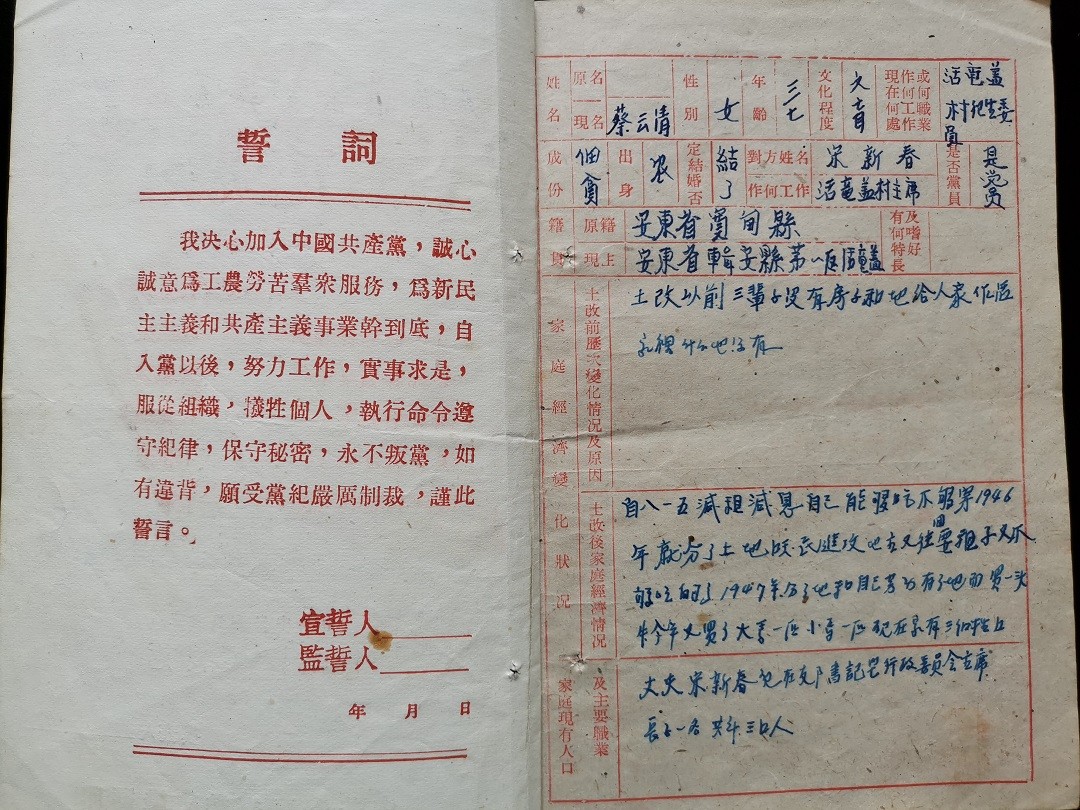 誓詞
我決心加入中國共產黨，誠心
誠意爲工農勞苦羣衆服務，爲新民
主主義和共產主義事業幹到底，自
入黨以後，努力工作，實事求是，
服從組織，犧牲個人，執行命令遵
守紀律，保守秘密，永不叛黨，如
有違背，願受黨紀嚴厲制裁，謹此
誓言。
宣誓人
監誓人
年 月 日
姓名
原名
現名
蔡云清
性別
女
年齡
三七
文化程度
文盲
或何職業作何工作現在何處
活龍盖
村
委員
成份
佃貧
出身
农
定結婚否
結了
對方姓名
宋新春
作何工作
活龍盖村主席
是否黨員
是党员
籍貫
原籍
安東省寬甸縣
現住
安東省輯安縣第一区活龍盖
及嗜好有何特長
家庭經濟變化狀况
土改前歷次變化情况及原因
土改以前三輩子没有房子和地給人家作活
家裡什么也没有
土改後家庭經濟情况
自八一五減租減息自己能够吃不够穿1946
年就分了土地
1947年分了地和自己
有了地
買一頭
牛今年又買了大
一匹小
一匹現在
及主要職業家庭現有人口
丈夫宋新春現在支部書記兼行政委員会主席
長子一名共計三口人